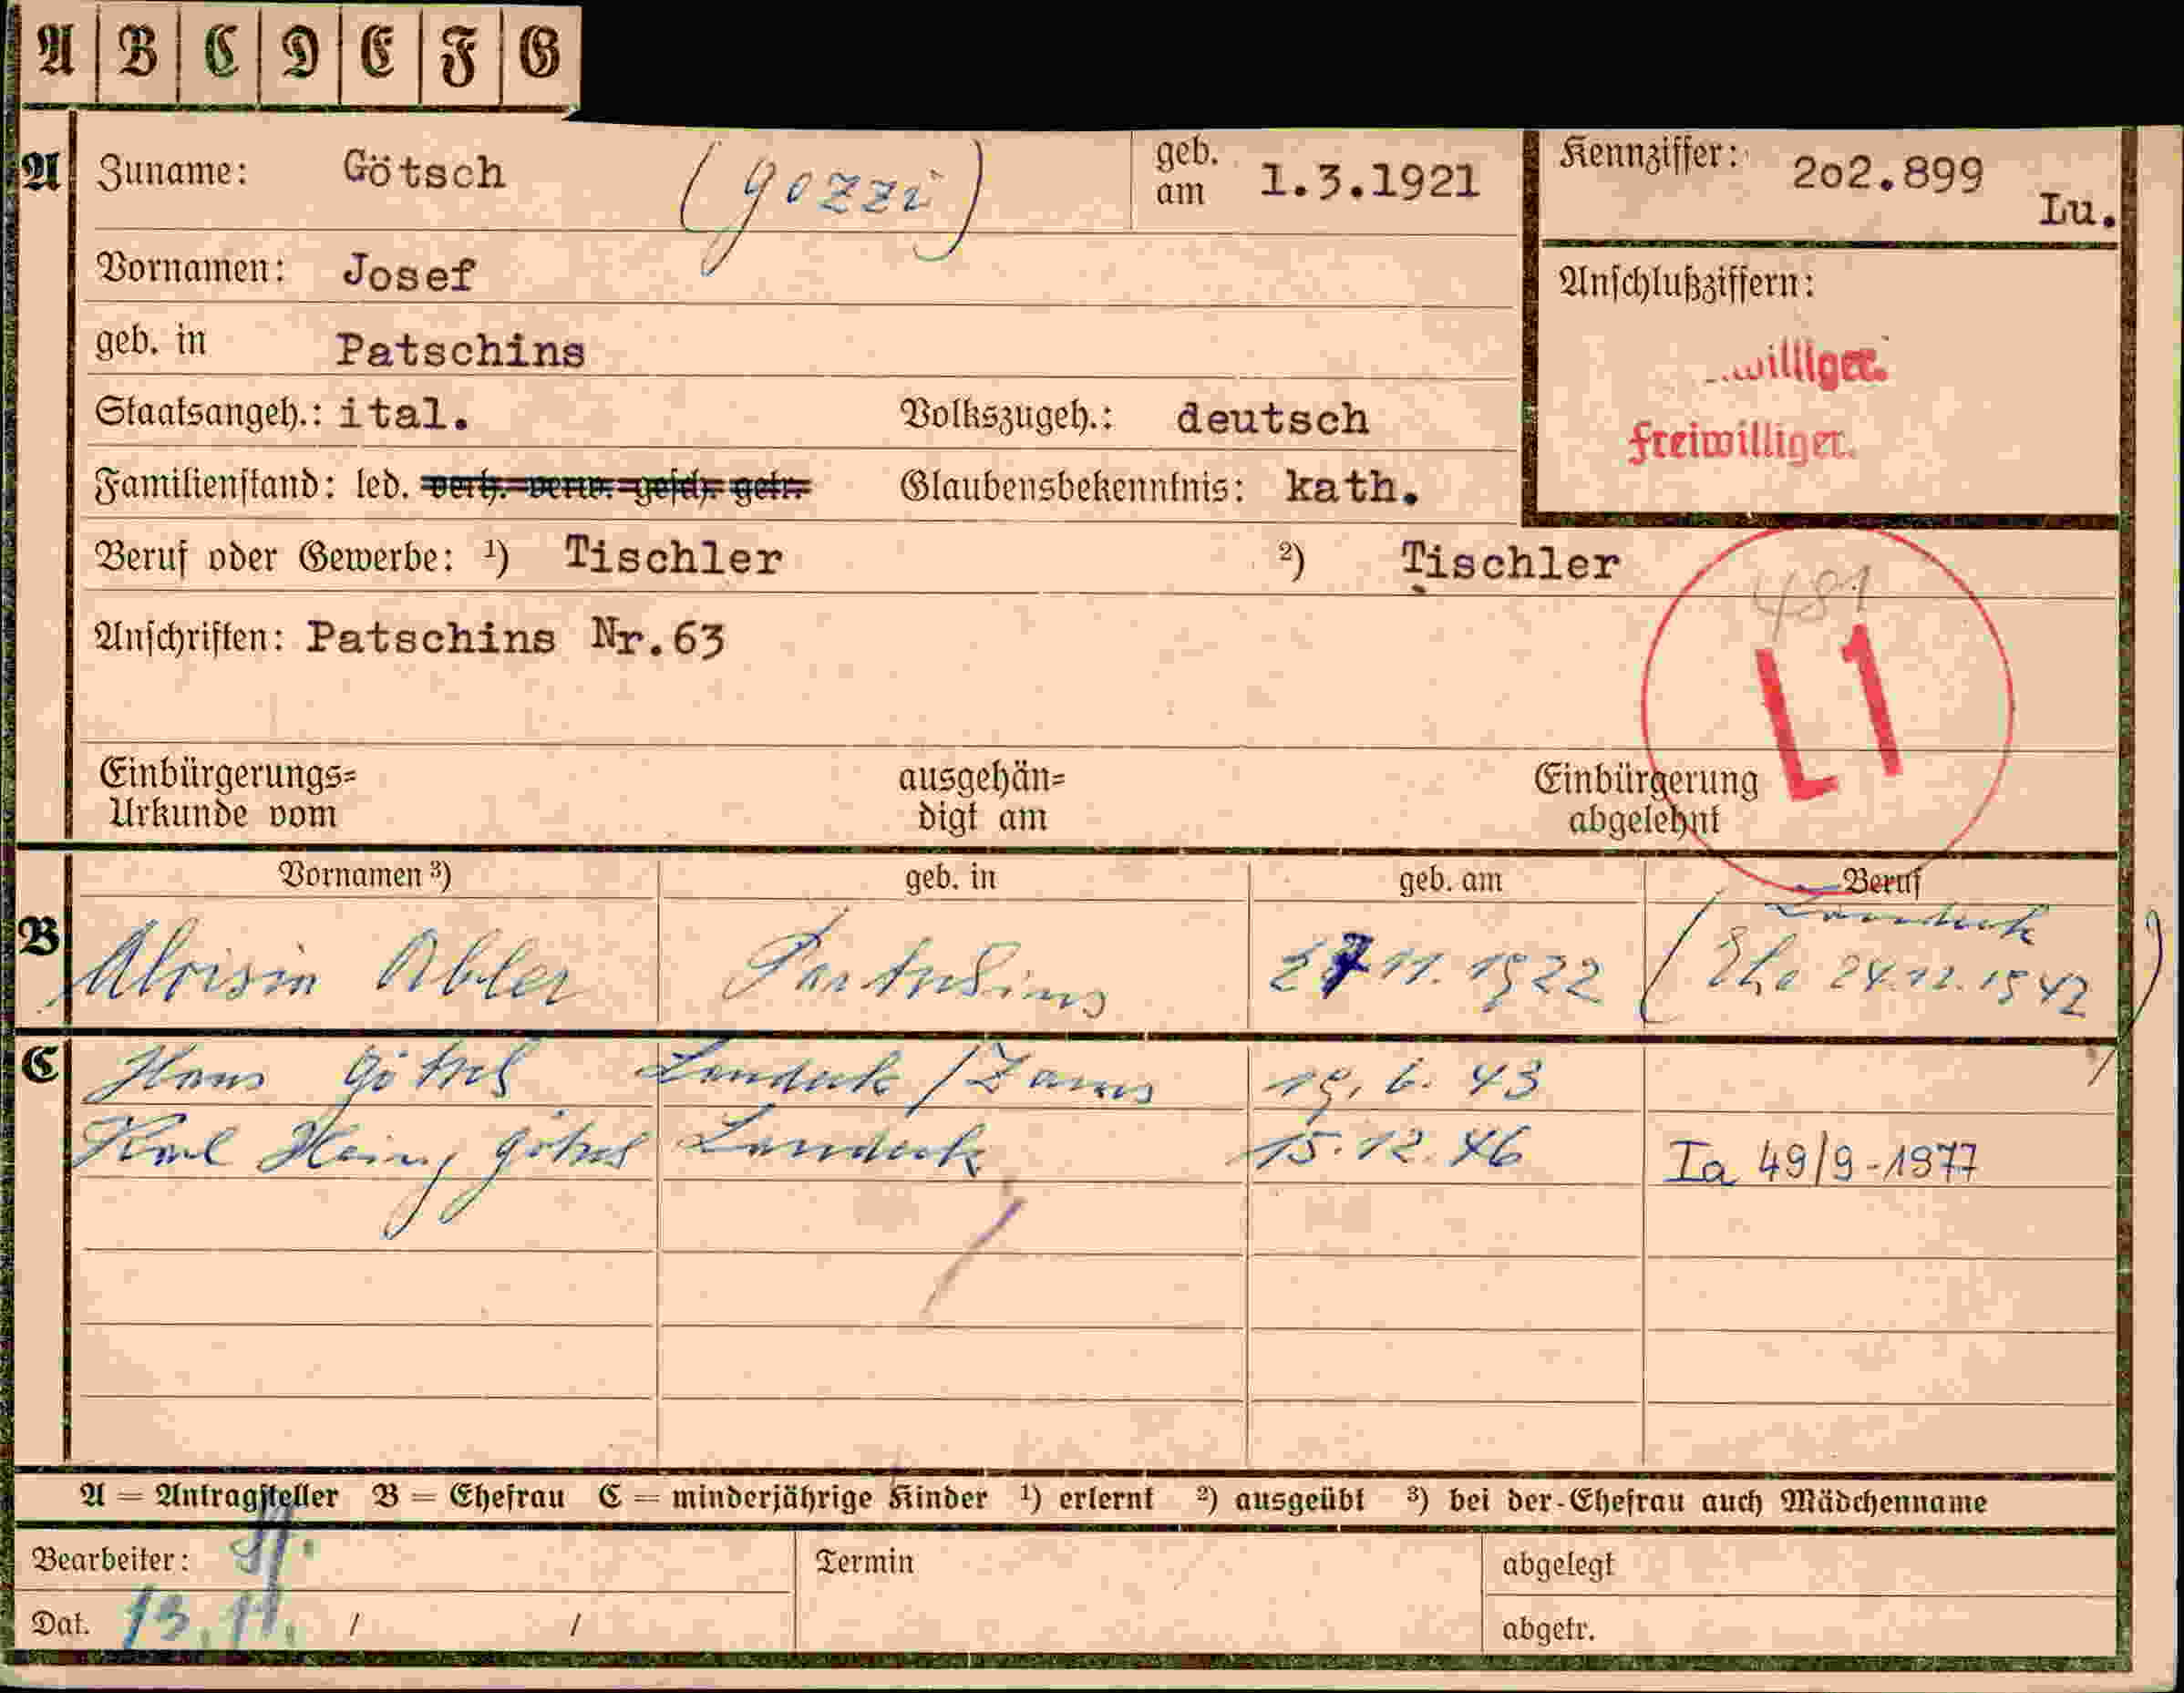 A B C D E F G
A Zuname: Götsch (Gozzi) geb. am 1.3.1921 Kennziffer: 2o2.899 Lu.
Vornamen: Josef Anschlußziffern:
geb. in Patschins williger.
Staatsangeh.: ital. Volkszugeh.: deutsch freiwilliger.
Familienstand: led. verh. verw. gesch. getr. Glaubensbekenntnis: kath.
Beruf oder Gewerbe: ¹) Tischler ²) Tischler
481
Anschriften: Patschins Nr.63 L1
Einbürgerungs= ausgehän= Einbürgerung
Urkunde vom digt am abgelehnt
Vornamen ³) geb. in geb. am Beruf
Landeck
B Aloisia Abler Partschins 27 11. 1922 (Ehe 24.12.1942)
C Hans Götsch Landeck / Zams 19. 6. 43
Karl Heinz Götsch Landeck 15.12.46 Ia 49/9-1977
A = Antragsteller B = Ehefrau C = minderjährige Kinder ¹) erlernt ²) ausgeübt ³) bei der Ehefrau auch Mädchenname
Bearbeiter: Termin abgelegt
Dat. 13.11. / / abgetr.